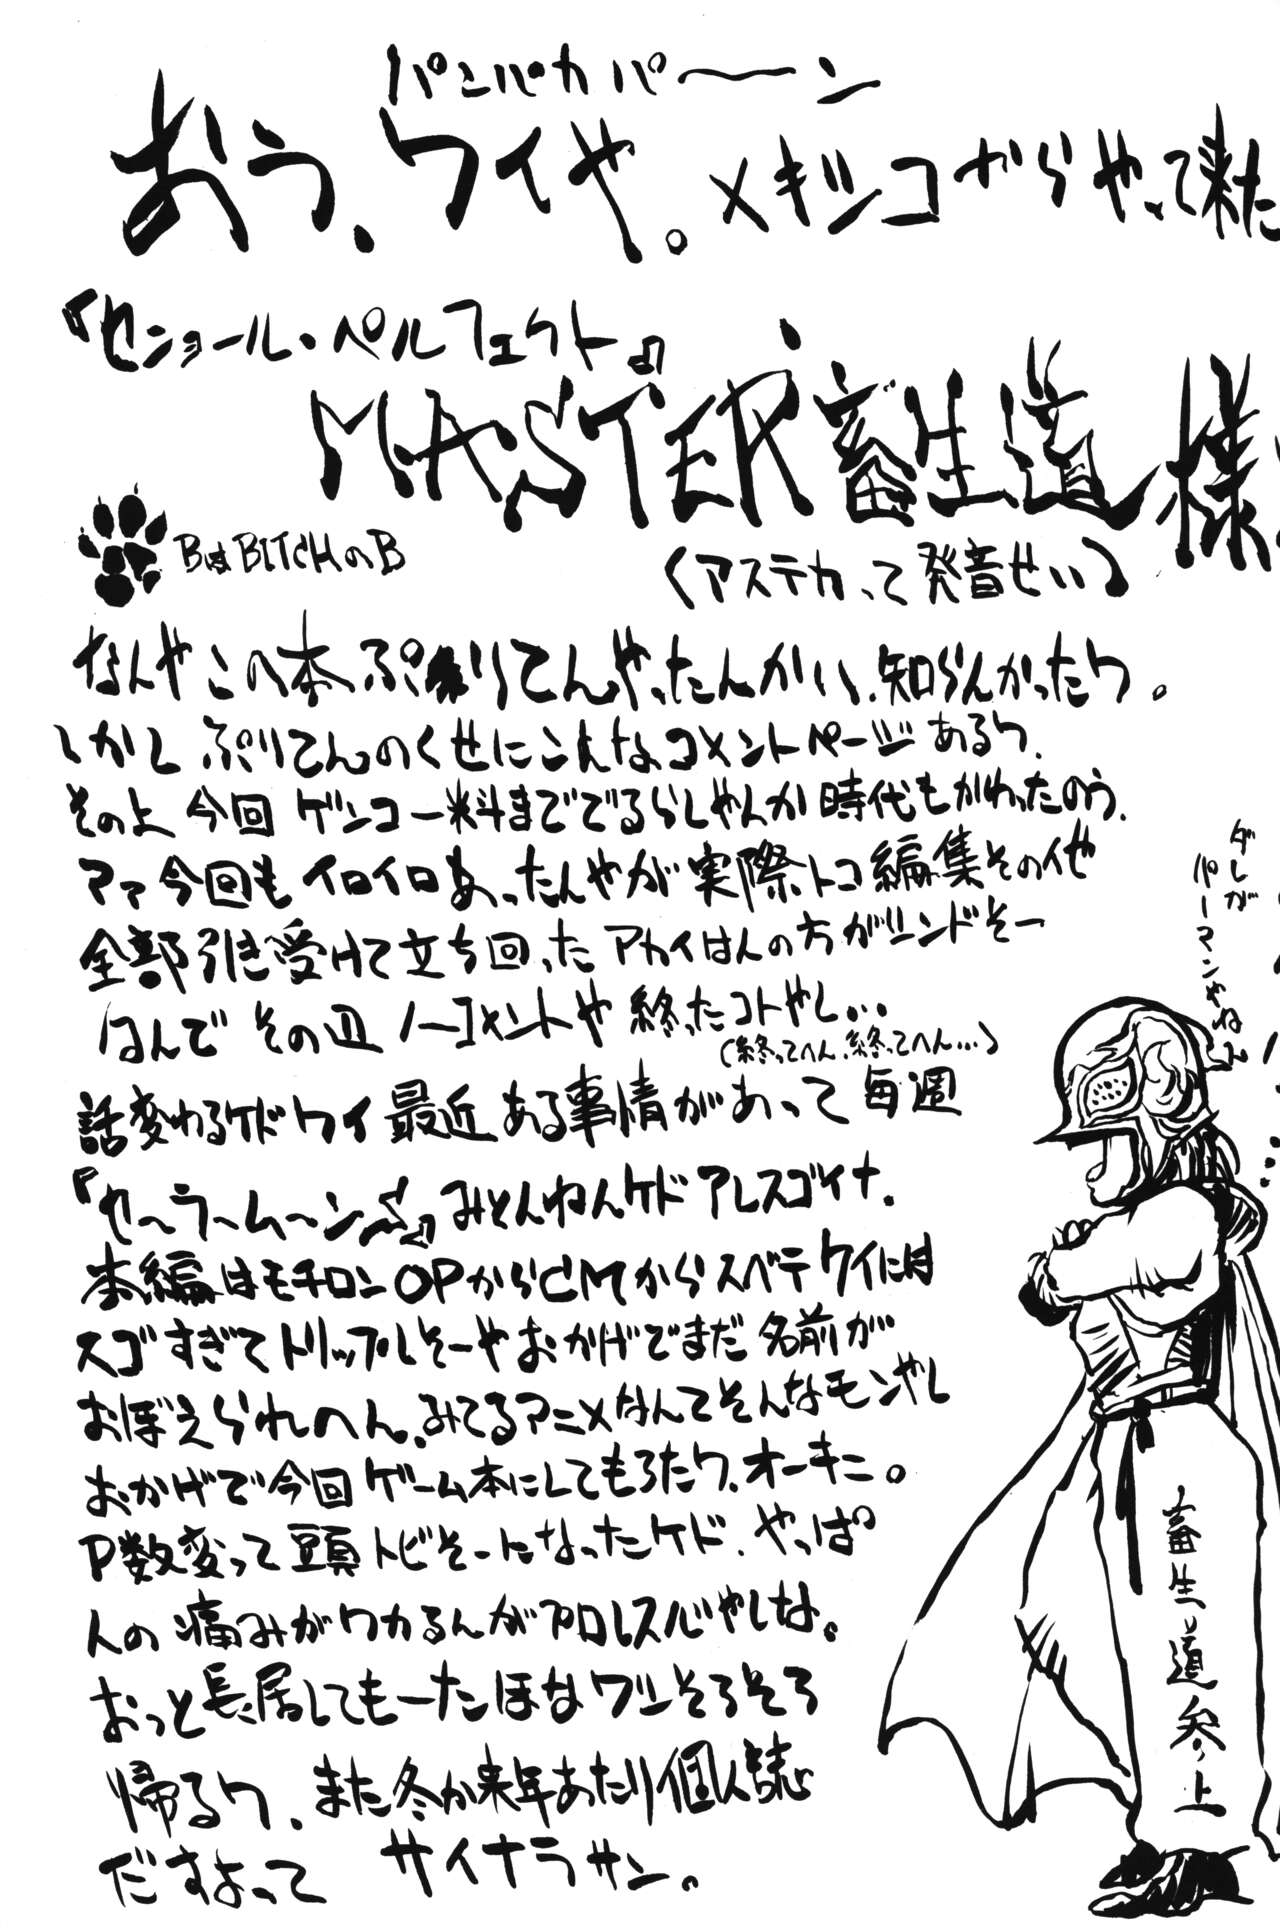 パンパカパ〜ン
おう、ワイや。メキシコからやって来た
『セニョール・ペルフェクト』
MASTER畜生道様
BはBITCHのB
(アステカって発音せい)
なんやこの本ぷりてんやったんかい、知らんかったワ。
しかしぷりてんのくせにこんなコメントページあるワ、
その上今回ゲンコー料まででるらしやんか時代もかわったのう、
マァ今回もイロイロあったんやが実際トコ編集その他
全部引き受けて立ち回ったアカイはんの方がシンドそー
なんでその辺ノーコメントや終ったコトやし…
(終ってへん、終ってへん…)
話変わるケドワイ最近ある事情があって毎週
『セ〜ラ〜ム〜ンS』みとんねんケドアレスゴイナ、
本編はモチロンOPからCMからスベテワイには
スゴすぎてトリップしそーやおかげでまだ名前が
おぼえられへん、みてるアニメなんてそんなモンやし
おかげで今回ゲーム本にしてもろたワ、オーキニ。
P数変って頭トビそーになったケド、やっぱ
人の痛みがワカるんがプロレス心やしな。
おっと長居してもーたほなワシそろそろ
帰るワ、また冬か来年あたり個人誌
だすよって サイナラサン。
ダレが
パーマンやねん
畜生道参上